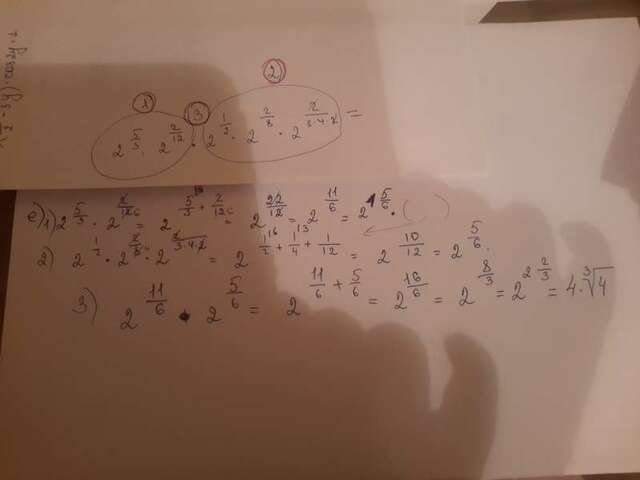 1 3 2)
2^{5/3} · 2^{2/12} · 2^{1/2} · 2^{2/8} · 2^{2/(3·4·2)} =
e) 1) 2^{5/3} · 2^{2/12} = 2^{5/3 + 2/12} = 2^{22/12} = 2^{11/6} = 2^{1 5/6} · ( )
2) 2^{1/2} · 2^{2/8} · 2^{2/(3·4·2)} = 2^{1/2 + 1/4 + 1/12} = 2^{10/12} = 2^{5/6}.
3) 2^{11/6} · 2^{5/6} = 2^{11/6 + 5/6} = 2^{16/6} = 2^{8/3} = 2^{2 2/3} = 4·∛4